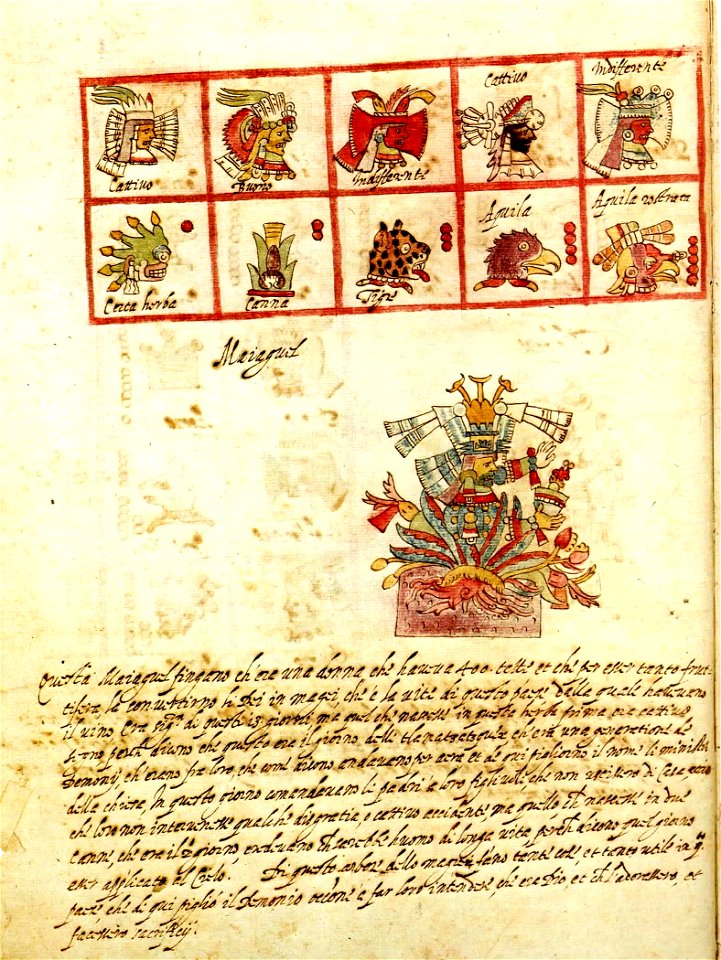 Cattivo
Buono
Indifferente
Cattivo
Indifferente
Certa herba
Canna
Tigre
Aquila
Aquila rostrata
Maiaguel
Questa Maiaguel fingano ch'era una donna che haveva 400 tette et che per esser tanto frut-
tifera la convertirno li Dei in magei che è la vite di questo paese dalla quale havevano
il vino. Era di questi 13 giorni ma quel che nasceva in questa herba prima era cattivo
perche dicono che questo era il giorno delli ch'era una generatione de
Demonij ch'erano fra loro, che come dicono andavano per aere et de qui pigliorno il nome li ministri
della chiesa, In questo giorno comandavano li padri a loro figliuoli, che non uscissero di casa
che loro non intervenesse qualche disgratia o cattivo accidente, ma quello ch' nascesse in due
canne, che era il 2 giorno, credevano che sarebbe huomo di longa vita, perch' dicono quel giorno
esser applicato al Cielo. Di questo arbore dello magei fano tante cose, et tanto utile in
paese, che de qui pigliò il Demonio a far loro intendere, che era Dio et ch' l'adorassero, et
facessero sacrificij.